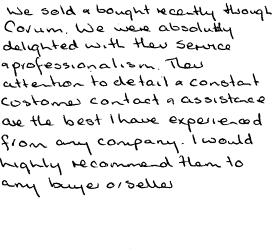 We sold & bought recently through
Corum. We were absolutly
delighted with their service
& professionalism. Their
attention to detail & constant
customer contact & assistance
are the best I have experienced
from any company. I would
highly recommend them to
any buyer or seller